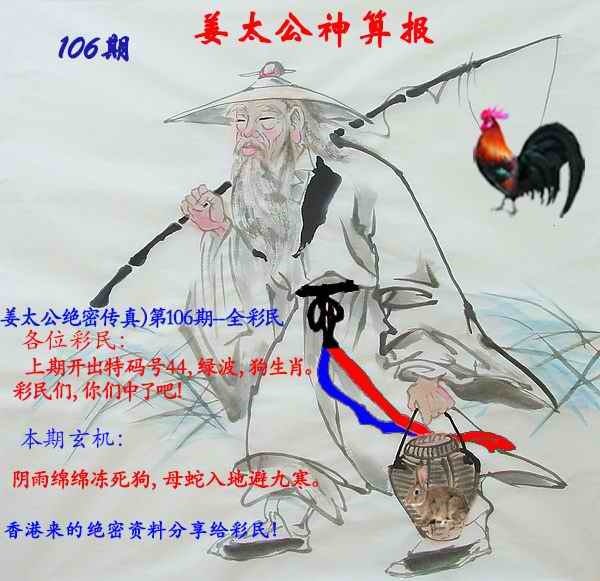 106期
姜太公神算报
姜太公绝密传真)第106期--全彩民
各位彩民:
上期开出特码号44,绿波,狗生肖。
彩民们,你们中了吧!
本期玄机:
阴雨绵绵冻死狗,母蛇入地避九寒。
香港来的绝密资料分享给彩民!